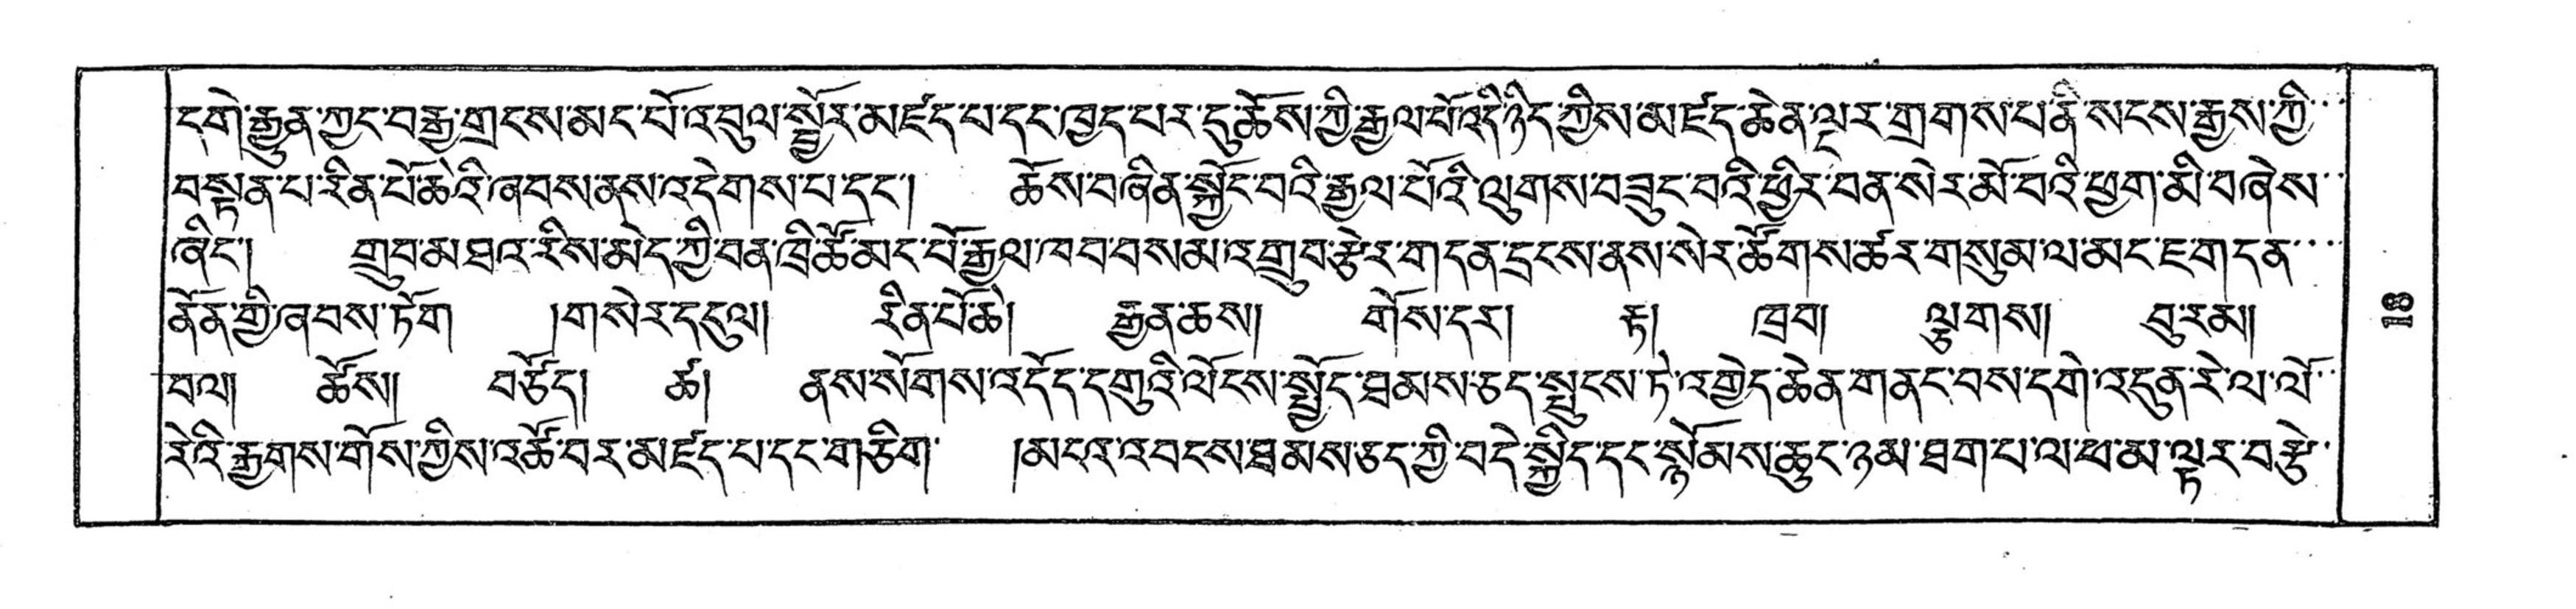 དགེ་རྒྱུན་ཀྱང་བརྒྱ་གྲངས་མང་པོ་འབུལ་སྦྱོར་མཛད་པ་དང་ཁྱད་པར་དུ་ཆོས་ཀྱི་རྒྱལ་པོ་འདི་ཉིད་ཀྱིས་མཛད་ཆེན་ལྔར་གྲགས་པ་ནི་སངས་རྒྱས་ཀྱི་
བསྟན་པ་རིན་པོ་ཆེའི་ཞབས་ནས་འདེགས་པ་དང་། ཆོས་བཞིན་སྐྱོང་བའི་རྒྱལ་པོའི་ལུགས་བཟུང་བའི་ཕྱིར་བན་སེར་མོ་བའི་ཕྱག་མི་བཞེས་
ཞིང་། གྲུབ་མཐའ་རིས་མེད་ཀྱི་བན་ཁྲི་ཚོ་མང་པོ་རྒྱལ་ཁབ་བསམ་འགྲུབ་རྩེར་གདན་དྲངས་ནས་སེར་ཚོགས་ཚར་གསུམ་ལ་མང་ཇ་གདན་
ནོན་གྱི་ཞབས་ཏོག །གསེར་དངུལ། རིན་པོ་ཆེ། རྒྱན་ཆས། གོས་དར། རྟ། ཁྲབ། ལྕུགས། བུ་རམ།
བལ། ཚོས། བཙོད། ཚ། ནས་སོགས་འདོད་དགུའི་ལོངས་སྤྱོད་ཐམས་ཅད་སྤུངས་ཏེ་འགྱེད་ཆེན་གནང་བས་དགེ་འདུན་རེ་ལ་ལོ་
རེའི་རྒྱགས་གོས་ཀྱིས་འཚོ་བར་མཛད་པ་དང་གཅིག །མངའ་འབངས་ཐམས་ཅད་ཀྱི་བདེ་སྐྱིད་དང་སྙོམས་ཆུང་ཉམ་ཐག་པ་ལ་ཕ་མ་ལྟར་བརྩེ་
18